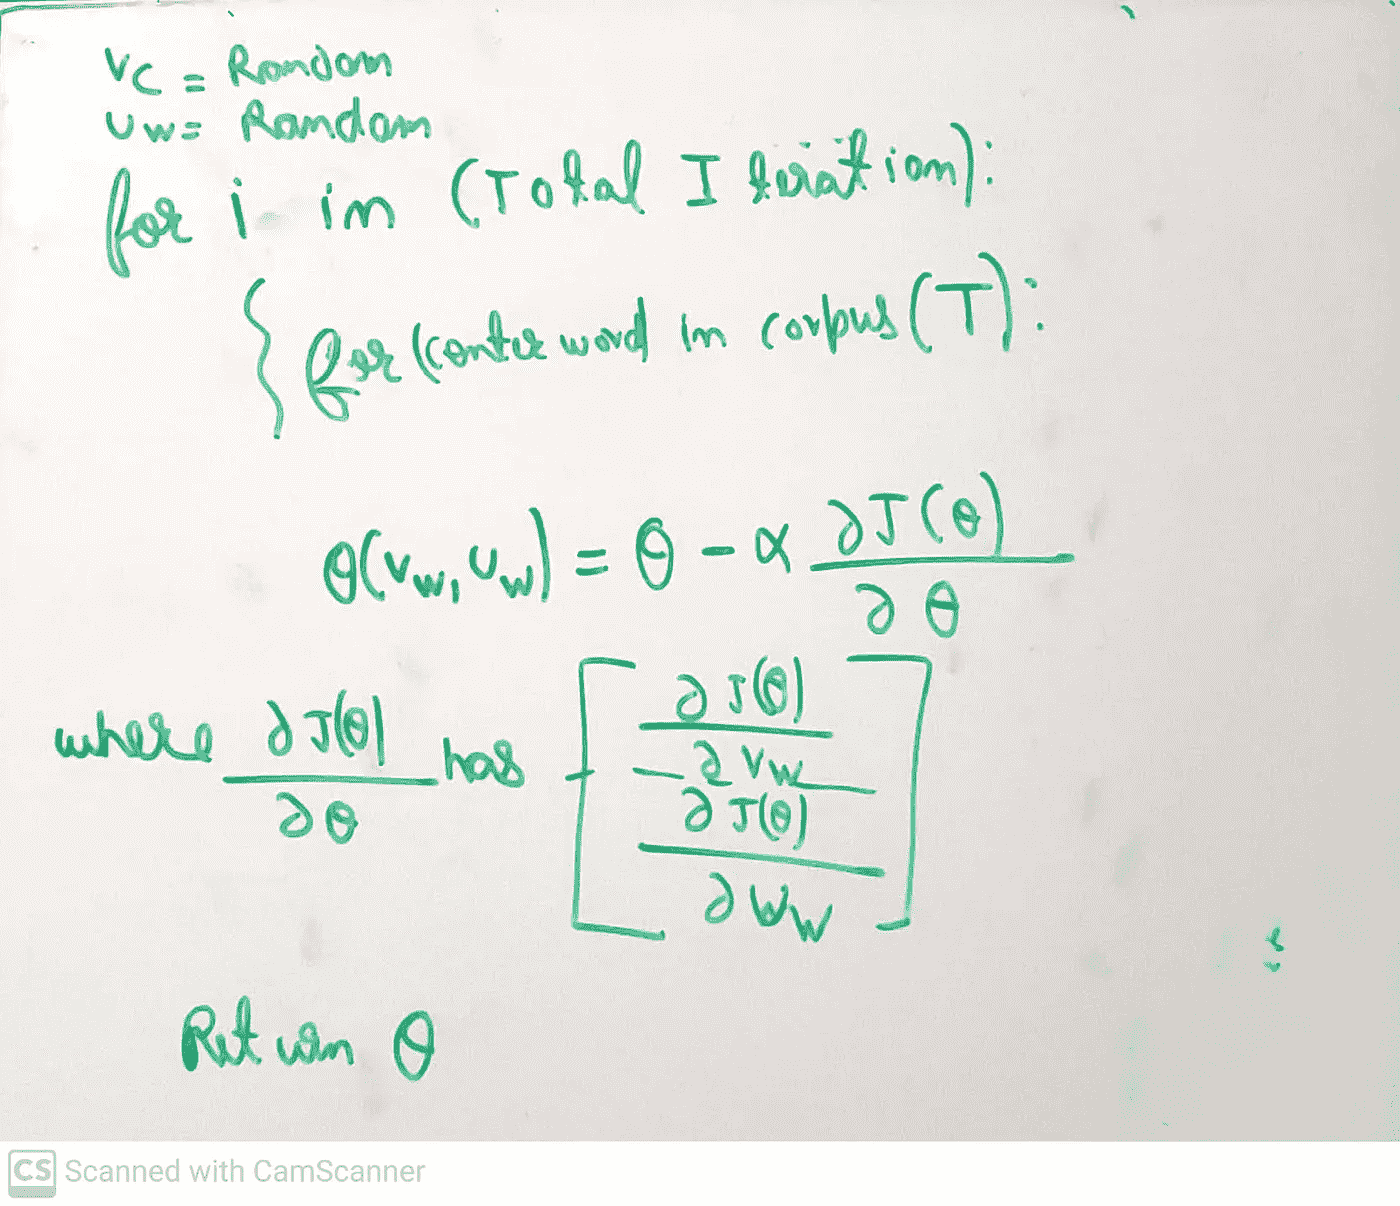 vc = Random
uw = Random
for i in (Total Iteration):
{ for (center word in corpus (T):
θ(vw, uw) = θ - α ∂J(θ) / ∂θ
where ∂J(θ) / ∂θ has [ ∂J(θ) / ∂vw
∂J(θ) / ∂Ww ]
Return θ
CS Scanned with CamScanner